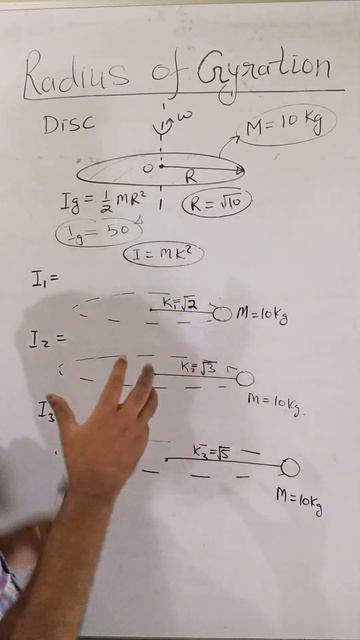 Radius of Gyration
ω
Disc
M=10 Kg
O
R
Ig = 1/2 MR²
R=√10
Ig = 50
I = MK²
I₁=
K₁=√2
M=10kg
I₂=
K₂=√3
M=10kg.
I₃
K₃=√5
M=10kg